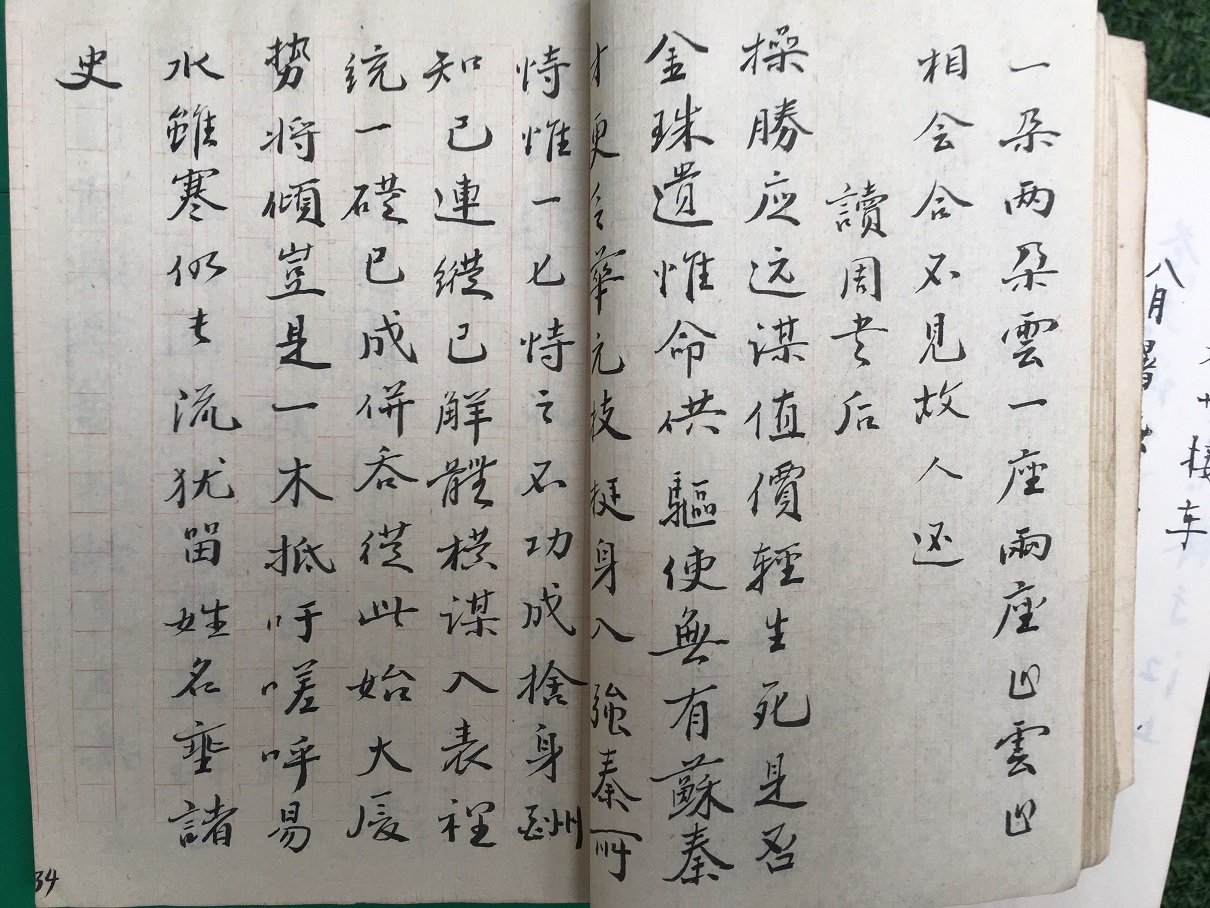 一朵两朵雲一座兩座山雲山
相会合不見故人还
讀周书后
操勝应远谋值價輕生死是否
金珠遗惟命供驅使無有蘇秦
才更乏華元技挺身入強秦所
恃惟一匕恃之不功成捨身酬
知己連縱已解體横谋入表裡
统一礎已成併吞從此始大厦
势将傾豈是一木抵吁嗟呼易
水雖寒仍长流犹留姓名垂諸
史
34
八月
楼车